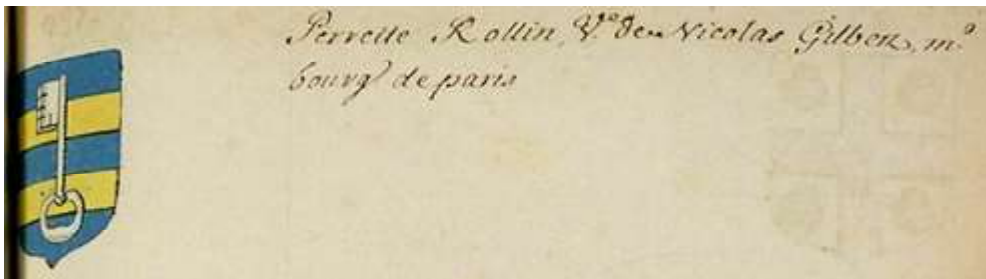 Perrette Rollin, Vᵉ de Nicolas Gilbert, mᵈ
bourgˢ de paris